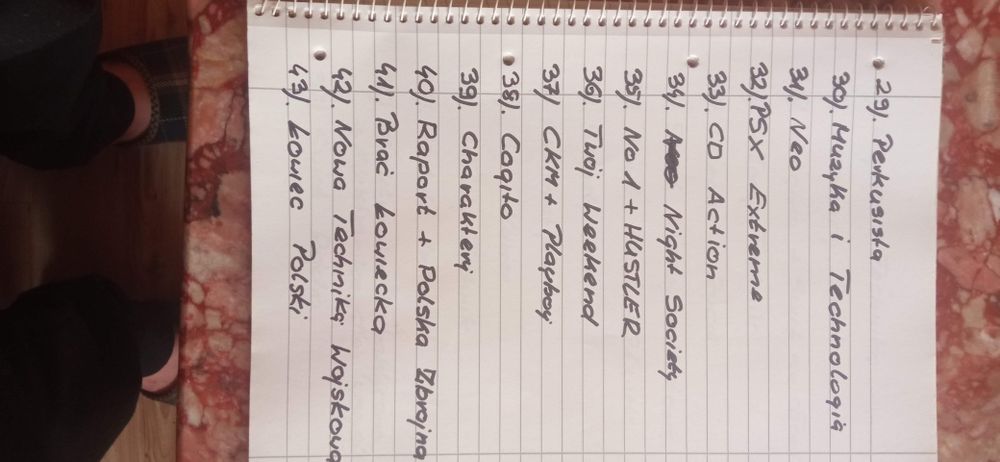 29). Perkusista
30). Muzyka i Technologia
31). Neo
32). PSX Extreme
33). CD Action
34). Night Society
35). No 1 + HUSTLER
36). Twój Weekend
37) CKM + Playboy
38). Cogito
39) Charaktery
40). Raport + Polska Zbrojna
41). Brać Łowiecka
42). Nowa Technika Wojskowa
43). Łowiec Polski